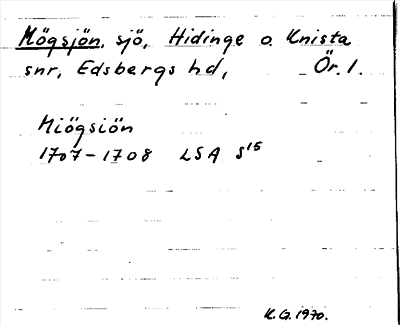 Mögsjön, sjö, Hidinge o. Knista
snr, Edsbergs hd, Ör. l.
Miögsiön
1707-1708 LSA S15
K.G.1970.